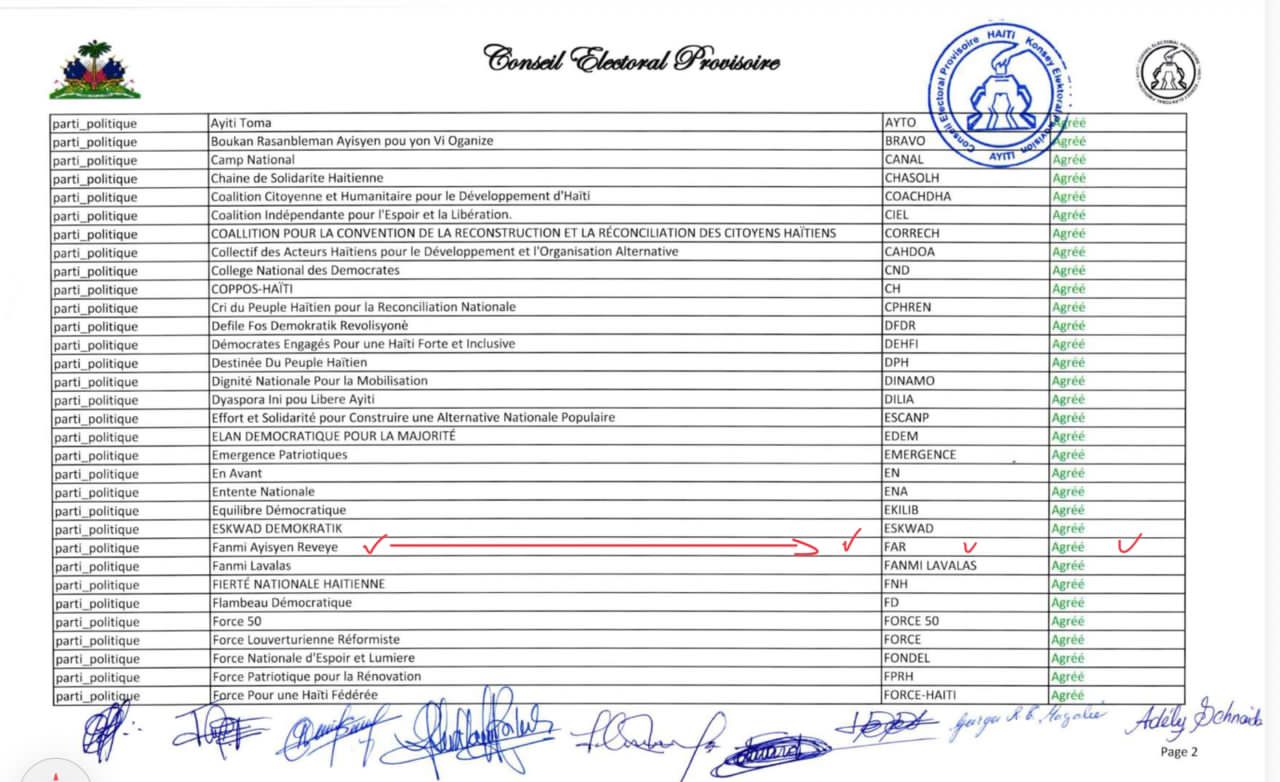 Conseil Electoral Provisoire
Conseil Electoral Provisoire HAITI Konsey Elektoral Provizwa AYITI
parti_politique Ayiti Toma AYTO Agréé
parti_politique Boukan Rasanbleman Ayisyen pou yon Vi Oganize BRAVO Agréé
parti_politique Camp National CANAL Agréé
parti_politique Chaine de Solidarite Haitienne CHASOLH Agréé
parti_politique Coalition Citoyenne et Humanitaire pour le Développement d'Haïti COACHDHA Agréé
parti_politique Coalition Indépendante pour l'Espoir et la Libération. CIEL Agréé
parti_politique COALLITION POUR LA CONVENTION DE LA RECONSTRUCTION ET LA RÉCONCILIATION DES CITOYENS HAÏTIENS CORRECH Agréé
parti_politique Collectif des Acteurs Haïtiens pour le Développement et l'Organisation Alternative CAHDOA Agréé
parti_politique College National des Democrates CND Agréé
parti_politique COPPOS-HAÏTI CH Agréé
parti_politique Cri du Peuple Haïtien pour la Reconciliation Nationale CPHREN Agréé
parti_politique Defile Fos Demokratik Revolisyonè DFDR Agréé
parti_politique Démocrates Engagés Pour une Haïti Forte et Inclusive DEHFI Agréé
parti_politique Destinée Du Peuple Haïtien DPH Agréé
parti_politique Dignité Nationale Pour la Mobilisation DINAMO Agréé
parti_politique Dyaspora Ini pou Libere Ayiti DILIA Agréé
parti_politique Effort et Solidarité pour Construire une Alternative Nationale Populaire ESCANP Agréé
parti_politique ELAN DEMOCRATIQUE POUR LA MAJORITÉ EDEM Agréé
parti_politique Emergence Patriotiques EMERGENCE Agréé
parti_politique En Avant EN Agréé
parti_politique Entente Nationale ENA Agréé
parti_politique Equilibre Démocratique EKILIB Agréé
parti_politique ESKWAD DEMOKRATIK ESKWAD Agréé
parti_politique Fanmi Ayisyen Reveye FAR Agréé
parti_politique Fanmi Lavalas FANMI LAVALAS Agréé
parti_politique FIERTÉ NATIONALE HAITIENNE FNH Agréé
parti_politique Flambeau Démocratique FD Agréé
parti_politique Force 50 FORCE 50 Agréé
parti_politique Force Louverturienne Réformiste FORCE Agréé
parti_politique Force Nationale d'Espoir et Lumiere FONDEL Agréé
parti_politique Force Patriotique pour la Rénovation FPRH Agréé
parti_politique Force Pour une Haïti Fédérée FORCE-HAITI Agréé
Adély Schnaida
Page 2